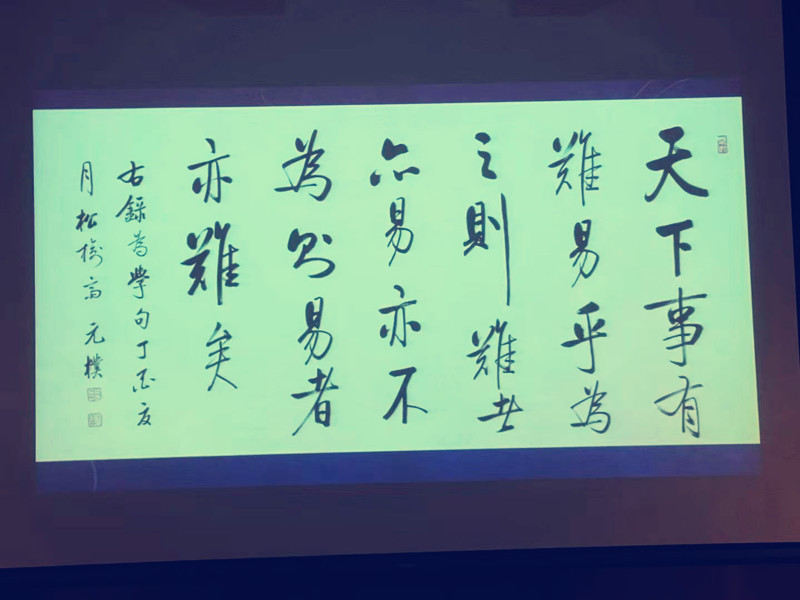 天下事有
難易乎為
之則難者
亦易亦不
為則易者
亦難矣
右錄為學句丁酉夏
月松 元樸